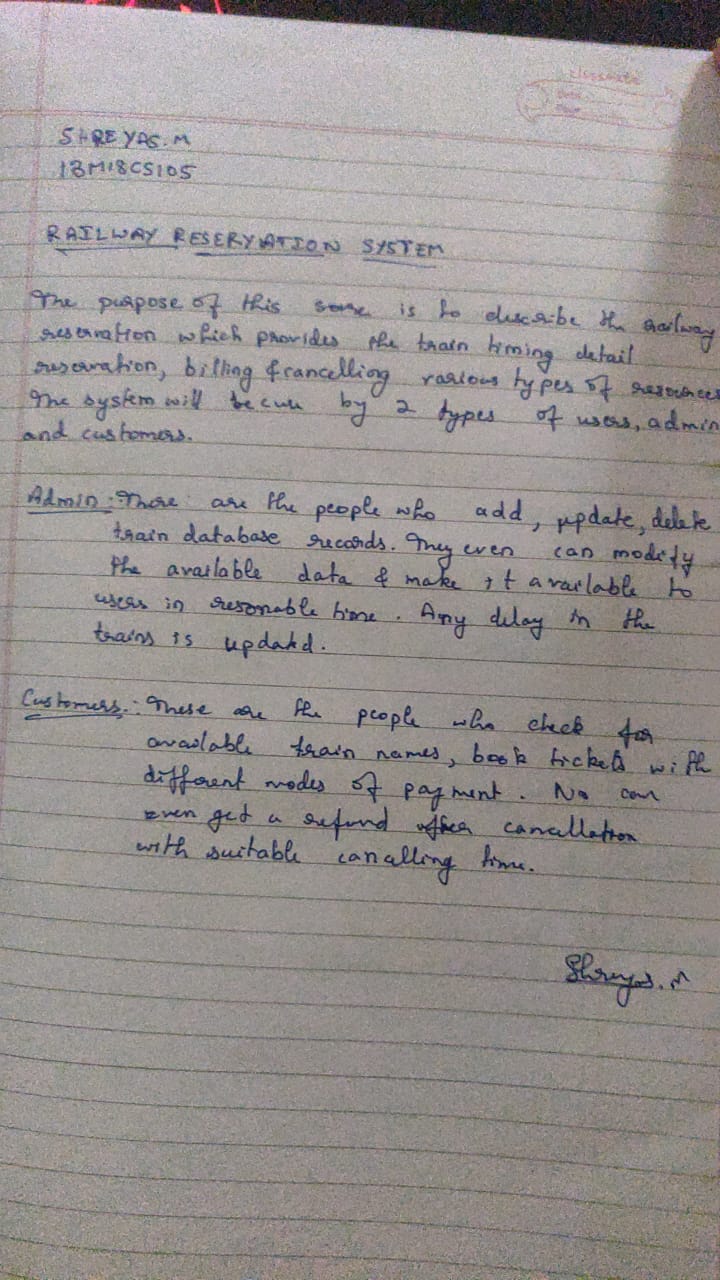 classmate
Date
Page
SHREYAS.M
1BM18CS105
RAILWAY RESERVATION SYSTEM
The purpose of this is to describe the railway
reservation which provides the train timing detail
reservation, billing & cancelliong various types of resources
The system will be by 2 types of users, admin
and customers.
Admin: are the people who add, update, delete
train database records. They even can modify
the available data & make it available to
users in resonable time. Any delay in the
trains is updated.
Customers: These are the people who check for
available train names, book tickets with
different modes of payment. can
even get a refund after cancellation
with suitable time.
Shreyas.M